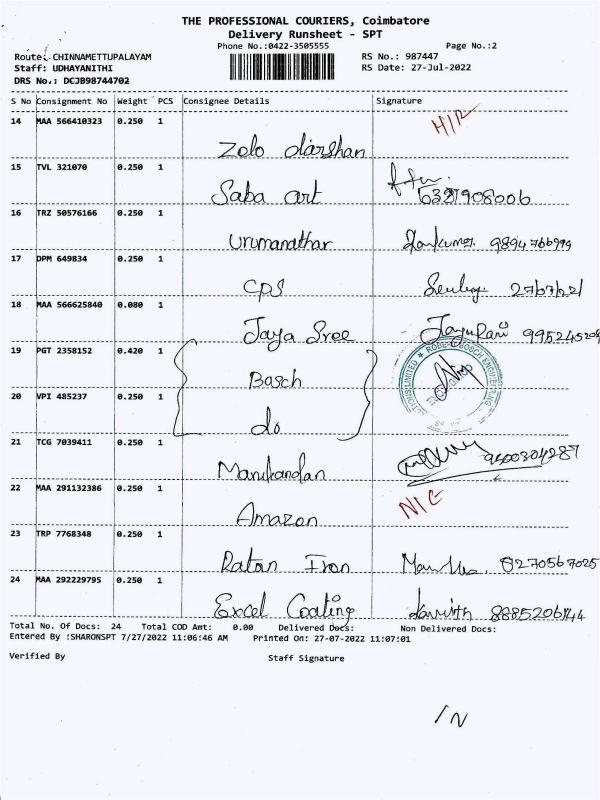 THE PROFESSIONAL COURIERS, Coimbatore
Delivery Runsheet - SPT
Phone No.:0422-3505555 Page No.:2
Route: CHINNAMETTUPALAYAM RS No.: 987447
Staff: UDHAYANITHI RS Date: 27-Jul-2022
DRS No.: DCJB98744702
S No Consignment No Weight PCS Consignee Details Signature
14 MAA 566410323 0.250 1
Zolo darshan
15 TVL 321070 0.250 1
Saba art
16 TRZ 50576166 0.250 1
Urumanathar
17 DPM 649834 0.250 1
CPS
18 MAA 566625840 0.080 1
Jaya Sree Jayarani 995245209
19 PGT 2358152 0.420 1
Bosch
20 VPI 485237 0.250 1
do
21 TCG 7039411 0.250 1
Manikandan
22 MAA 291132386 0.250 1
Amazon
23 TRP 7768348 0.250 1
Ratan Iron 8270567025
24 MAA 292229795 0.250 1
Excel Coating
Total No. Of Docs: 24 Total COD Amt: 0.00 Delivered Docs: Non Delivered Docs:
Entered By :SHARONSPT 7/27/2022 11:06:46 AM Printed On: 27-07-2022 11:07:01
Verified By Staff Signature